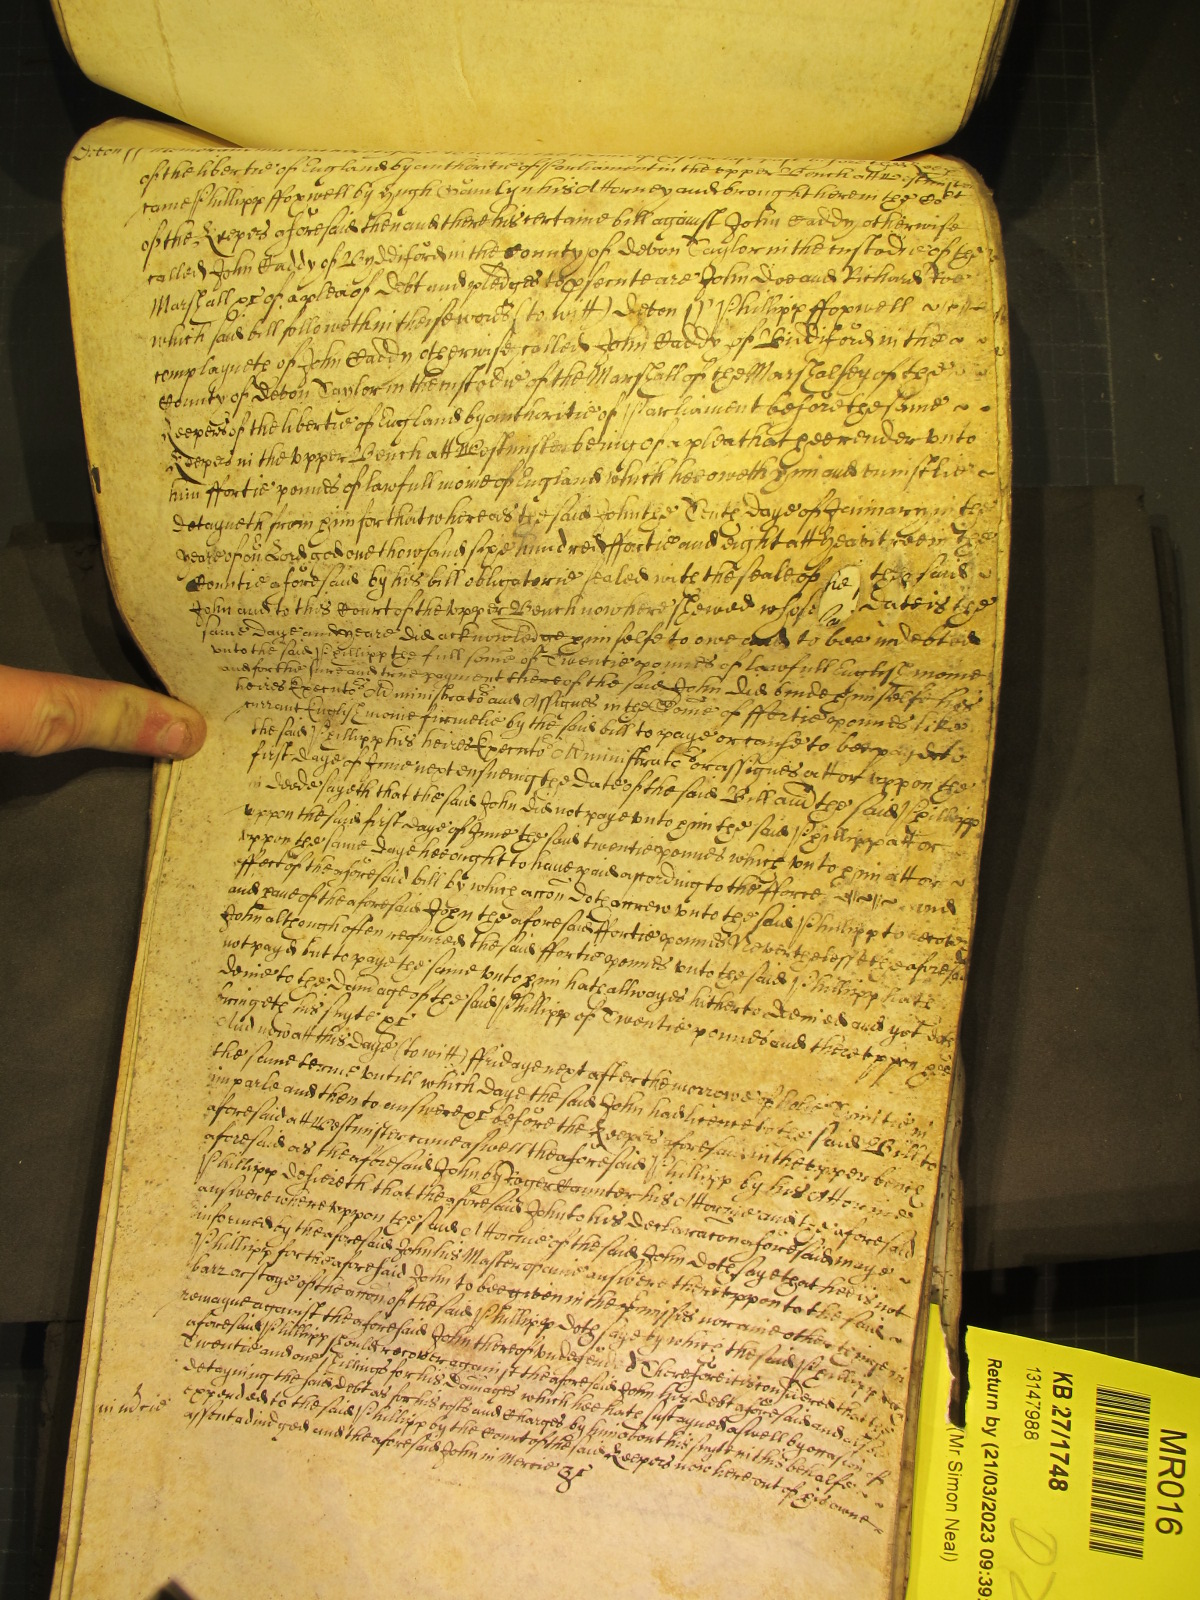 Devon ss
of the libertie of England by authoritie of Parliament in the upper Bench att Westminster
came Phillipp Foxwell by Hugh Hamlyn his Attorney and brought here in the Court
of the Keepers aforesaid then and there his certaine bill against John Eaddy otherwise
called John Eaddy of Byddiford in the County of Devon Taylor in the custodie of the
Marshall &c of a plea of Debt and pledges to psecute are John Doe and Richard Roe
which said bill followeth in theise words (to witt) Devon ss Phillipp ffoxwell
complayneth of John Eaddy otherwise called John Eaddy of Biddiford in the
County of Devon Taylor in the custodie of the Marshall of the Marshalsey of the
Keepers of the libertie of England by authoritie of Parliament before the same
Keepers in the upper Bench att Westminster being of a plea that hee render unto
him ffortie pounds of lawfull monie of England which hee oweth him and uniustlie
detayneth from him for that whereas the said John the Tenth Daye of January in the
yeare of our Lord god one thowsand sixe hundred ffortie and eight att in the
Countie aforesaid by his bill obligatorie sealed with the seale of him the said
John and to this Court of the upper Bench now here shewed whose Date is the
same Daye and yeare did acknowledge himselfe to owe and to bee indebted
unto the said Phillipp the full some of Twentie pounds of lawfull English monie
and for the sure and true payment thereof the said John did binde himselfe his
heires Executors Administrators and Assignes in the Some of ffortie pounds like
currant English monie firmelie by the said bill to paye or cause to bee payd to
the said Phillipp his heires Executors Administrators or assignes att or uppon the
first Daye of June next ensueing the Date of the said Bill and the said Phillipp
in deede sayeth that the said John did not paye unto him the said Phillipp att or
uppon the said first daye of June the said twentie pounds which unto him att or
uppon the same daye hee ought to have paid according to the fforce and
effect of the aforesaid bill by which accon doth accrew unto the said Phillipp to recover
and have of the aforesaid John the aforesaid ffortie pounds Neverthelesse the aforesaid
John although often required the said ffortie pounds unto the said Phillipp hath
not payd but to paye the same unto him hath allwayes hitherto denied and yet doth
denie to the Damage of the said Phillipp of Twentie pounds and thereuppon hee
bringeth his suyte &c
And now att this Daye (to witt) ffridaye next after the morrowe of holie Trinitie in
the same terme untill which Daye the said John had licence to the said Bill to
imparle and then to answere &c before the Keepers aforesaid in the upper bench
aforesaid att Westminster came aswell the aforesaid Phillipp by his Attornie
aforesaid as the aforesaid John by Roger Gaunter his Attornie and the aforesaid
Phillipp desireth that the aforesaid John to his declaracon aforesaid maye
answere whereuppon the said Attornie of the said John doth saye that hee is not
informed by the aforesaid John his Master of anie answere thereuppon to the said
Phillipp for the aforesaid John to bee given in the premisses nor anie other thinge in
barr or staye of the accon of the said Phillipp doth saye by which the said Phillipp doth
remayne against the aforesaid John thereof undefended Therefore it is considered that the
aforesaid Phillipp should recover against the aforesaid John his debt aforesaid and alsoe
Twentie and one shillings for his Damages which hee hath sustayned aswell by occasion of
detayning the said debt as for his costs and charges by him about his suyte in this behalfe
expended to the said Phillipp by the Court of the said Keepers now here out of his owne
assent adiudged and the aforesaid John in Mercie &c
in m'cie
MR016
KB 27/1748
13147988
Return by (21/03/2023 09:39:
(Mr Simon Neal)